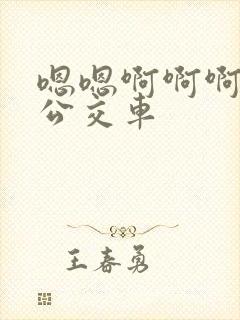 嗯嗯啊啊啊
公交车
王春勇